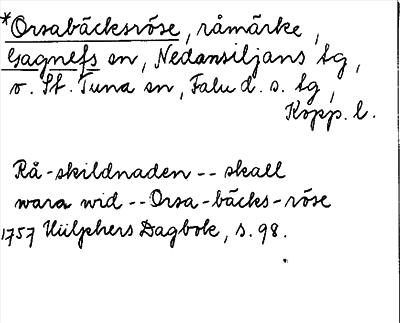 *Orsabäcksröse, råmärke,
Gagnefs sn, Nedansiljans tg,
o. St. Tuna sn, Falu d. s. tg,
Kopp. l.
Rå-skildnaden -- skall
wara wid -- Orsa-bäcks-röse
1757 Hülphers Dagbok, s. 98.